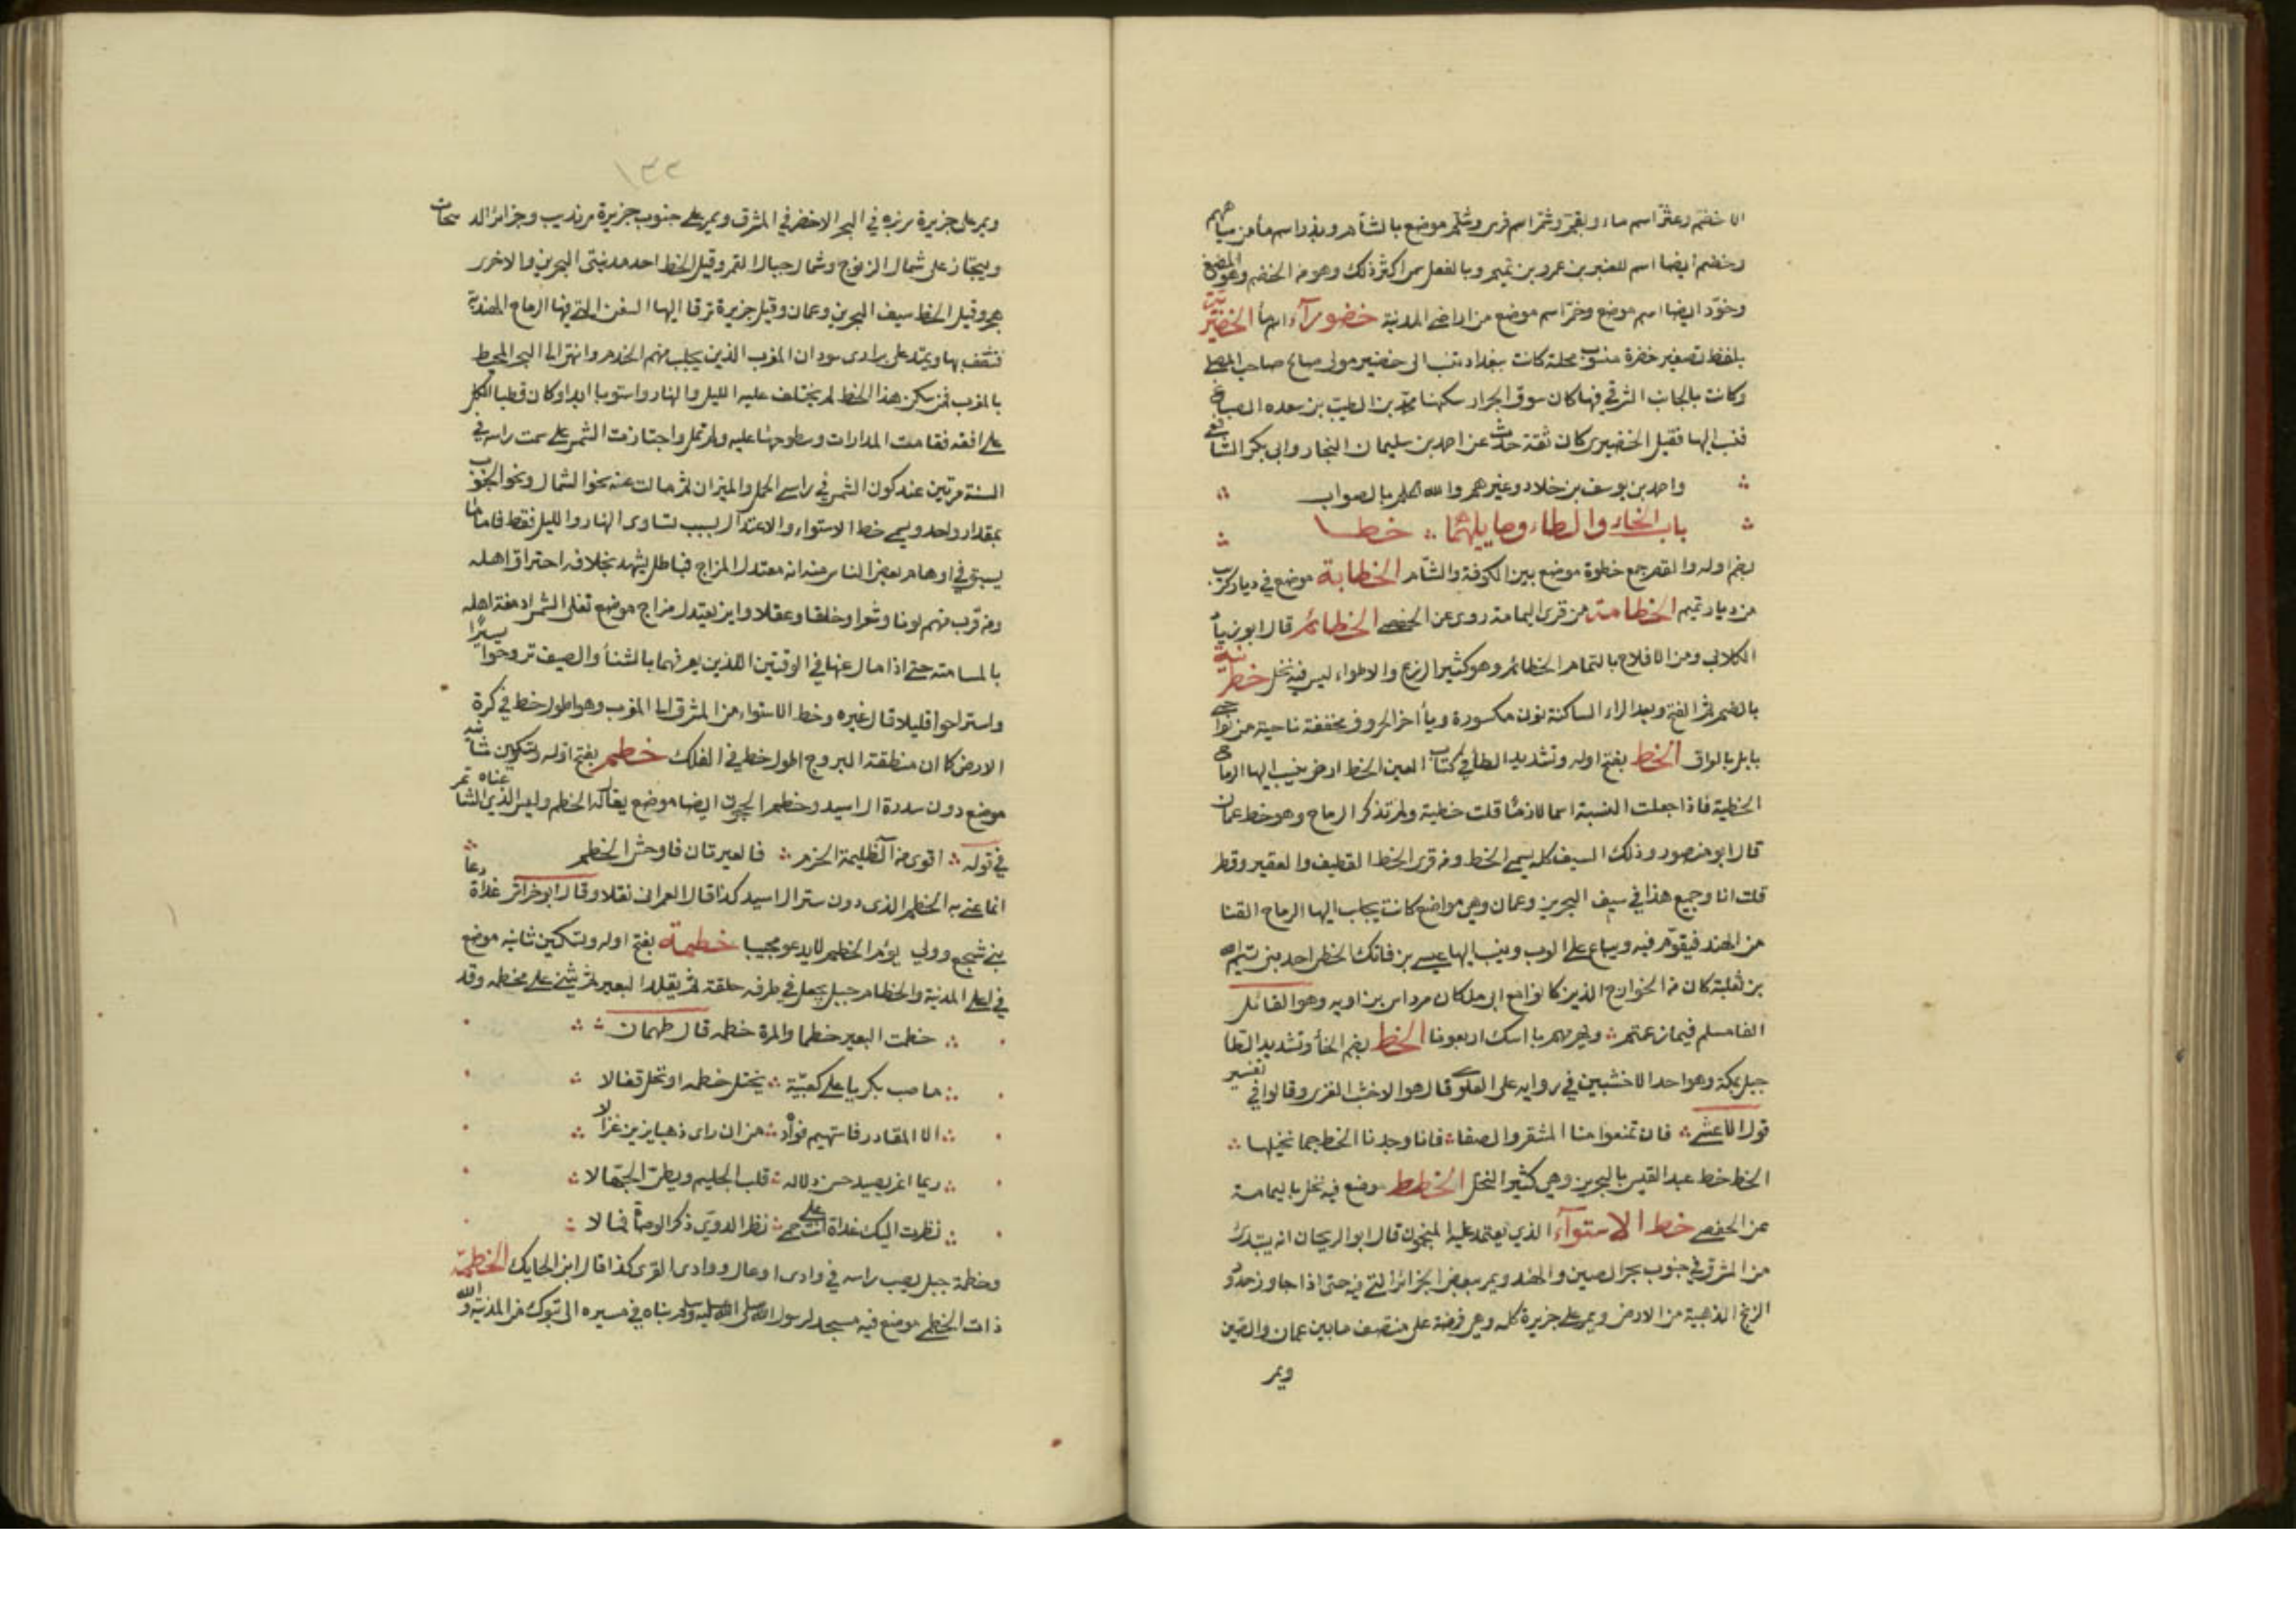 الا خضّم وعثّر اسم ماء وبقّم وشمّر اسم فرس وشلّم موضع بالشأم وبذر اسم ماء من مياههم
وخضم ايضا اسم للعنبر بن عمرو بن تميم وبالفعل سمي اكثر ذلك وهو من الخضم وهو المضغ
وخوّد ايضا اسم موضع وخمّر اسم موضع من اراضي المدينة خضورآء اسم ماء الخضيرية
بلفظ تصغير خضرة منسوب محلة كانت ببغداد تنسب الى خضير مولى صالح صاحب المصلى
وكانت بالجانب الشرقي فيها كان سوق الجرار سكنها محمد بن الطيب بن سعده الصباغ
فنسب اليها فقيل الخضيري كان ثقة حدث عن احمد بن سليمان النجاد وابي بكر الشافعي
واحمد بن يوسف بن خلاد وغيرهم والله اعلم بالصواب
باب الخاء والطاء وما يليهما خطا
بضم اوله والقصر جمع خطوة موضع بين الكوفة والشأم الخطابة موضع في ديار كرب
من ديار تميم الخطامة من قرى اليمامة روى عن الحفصي الخطائم قال ابو زياد
الكلابي ومن الافلاج باليمامة الخطائم وهو كثير الزرع والاطواء ليس فيه نخل خطرنية
بالضم ثم الفتح وبعد الراء الساكنة نون مكسورة ويأ اخر الحروف مخففة ناحية من نواحي
بابل بالعراق الخط بفتح اوله وتشديد الطأ في كتاب العين الخط ارض ينسب اليها الرماح
الخطية فاذا جعلت النسبة اسما لازما قلت خطية ولم تذكر الرماح وهو خط عمان
قال ابو منصور وذلك السيف كله يسمى الخط ومن قرى الخط القطيف والعقير وقطر
قلت انا وجميع هذا في سيف البحرين وعمان وهي مواضع كانت يجلب اليها الرماح القنا
من الهند فيقوّم فيه ويباع على العرب وينسب اليها عيسى بن فاتك الخطي احد بني تيم الله
بن ثعلبة كان من الخوارج الذين كانوا مع ابي بلال كان مرداس بن اديه وهو القائل
الفا مسلم فيما زعمتم ويهزمهم باسك اربعونا الخط بضم الخأ وتشديد الطا
جبل بمكة وهو احد الاخشبين في رواية على العلوي قال هو الاخشب الغربي وقالوا في تفسير
قول الاعشى فان تمنعوا منا المشقر والصفا فانا وجدنا الخط جما نخيلها
الخط خط عبد القيس بالبحرين وهي كثير النخل الخطط موضع فيه نخل باليمامة
عن الحفصي خط الاستوآء الذي يعتمد عليه المنجمون قال ابو الريحان انه يبتدئ
من المشرق في جنوب بحر الصين والهند ويمر ببعض الجزائر التي فيه حتى اذا جاوز حدود
الزنج الذهبية من الارض ويمر على جزيرة كله وهي فرضة على منتصف ما بين عمان والصين
ويمر
١٣٢
ويمر على جزيرة سربزه في البحر الاخضر في المشرق ويمر على جنوب جزيرة سرنديب وجزائر الديبجات
ويجتاز على شمال الزنوج وشمال جبال القمر وقيل الخط احد مدينتي البحرين والاخرى
هجر وقيل الخط سيف البحرين وعمان وقيل جزيرة ترفا اليها السفن التي فيها الرماح الهندية
فتثقف بها ويمتد على براري سودان المغرب الذين يجلب منهم الخدم وانتهى الى البحر المحيط
بالمغرب فمن سكن هذا الخط لم يختلف عليه الليل والنهار واستويا ابدا وكان قطبا الكل
على افقه فقامت المدارات وسطوحها عليه ولم تمل واجتازت الشمس على سمت راسه في
السنة مرتين عند كون الشمس في راسي الحمل والميزان ثم مالت عنه نحو الشمال ونحو الجنوب
بمقدار واحد ويسمى خط الاستواء والاعتدال بسبب تساوي النهار والليل فقط فاما ما
يسبق في اوهام بعض الناس منه انه معتدل المزاج فباطل يشهد بخلافه احتراق اهله
ومن قرب منهم لونا وشعرا وخلقا وعقلا واين يعتدل مزاج موضع تغلي الشمس ادمغة اهله
بالمسامتة حتى اذا مال عنها في الوقتين اللذين يعرفهما بالشتأ والصيف تروحوا يسيرًا
واستراحوا قليلا قال غيره وخط الاستواء من المشرق الى المغرب وهو اطول خط في كرة
الارض كما ان منطقة البروج اطول خط في الفلك خطم بفتح اوله وتسكين ثانيه
موضع دون سدرة ال اسيد وخطم الحجون ايضا موضع يقال له الخطم وليس الذي عناه الشاعر
في قوله اقوى من ال ظليمة الحزم فالعيرتان فاوحش الخطم
انما عني به الخطم الذي دون ستر ال اسيد كذا قال العمراني نقلا وقال ابو خراش غداة دعا
بني شجع وولى يؤم الخطم لا يدعو مجيبا خطمة بفتح اوله وتسكين ثانيه موضع
في اعلى المدينة والخطام حبل يجعل في طرفه حلقة ثم يقلد البعير ثم يثنى على مخطمه وقد
خطمت البعير خطما والمرة خطمة قال طهمان
ما صب بكريا على كعبيّة تحتل خطمه او تحل قفالا
الا المقادر فاستهيم فؤاده من ان راى ذهبا يزين غزالا
ريما اغر يصيد حسن دلاله قلب الحليم ويطبي الجهالا
نظرت اليك غداة انت على حمى نظر الدوي ذكر الوصاة فمالا
وخطمة جبل يصب راسه في وادي اوعال ووادي القرى كذا قال ابن الحايك الخطميّ
ذات الخطمي موضع فيه مسجد لرسول الله صلى الله عليه وسلم بناه في مسيره الى تبوك من المدينة والله